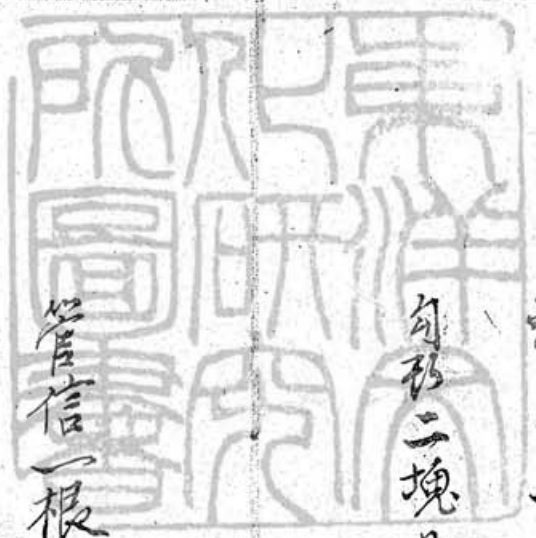 東洋文
化研究
所圖書
二塊
管信一根